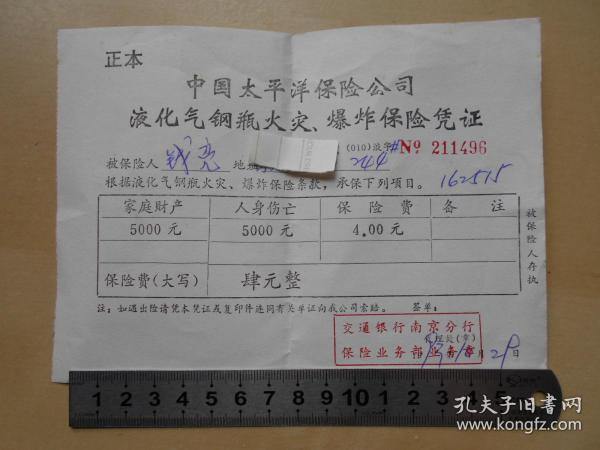 正本
中国太平洋保险公司
液化气钢瓶火灾、爆炸保险凭证
(010)液字 №211496
被保险人 钱亮 地址 244
根据液化气钢瓶火灾、爆炸保险条款，承保下列项目。 162515
家庭财产 人身伤亡 保险费 备注
5000元 5000元 4.00元
保险费(大写) 肆元整
被保险人存执
注：如遇出险请凭本凭证或复印件连同有关单证向我公司索赔。 签单：
交通银行南京分行
保险业务部业务章
月29日
1 2 3 4 5 6 7 8 9 10 1 2 3 4 5
孔夫子旧书网
www.kongfz.com